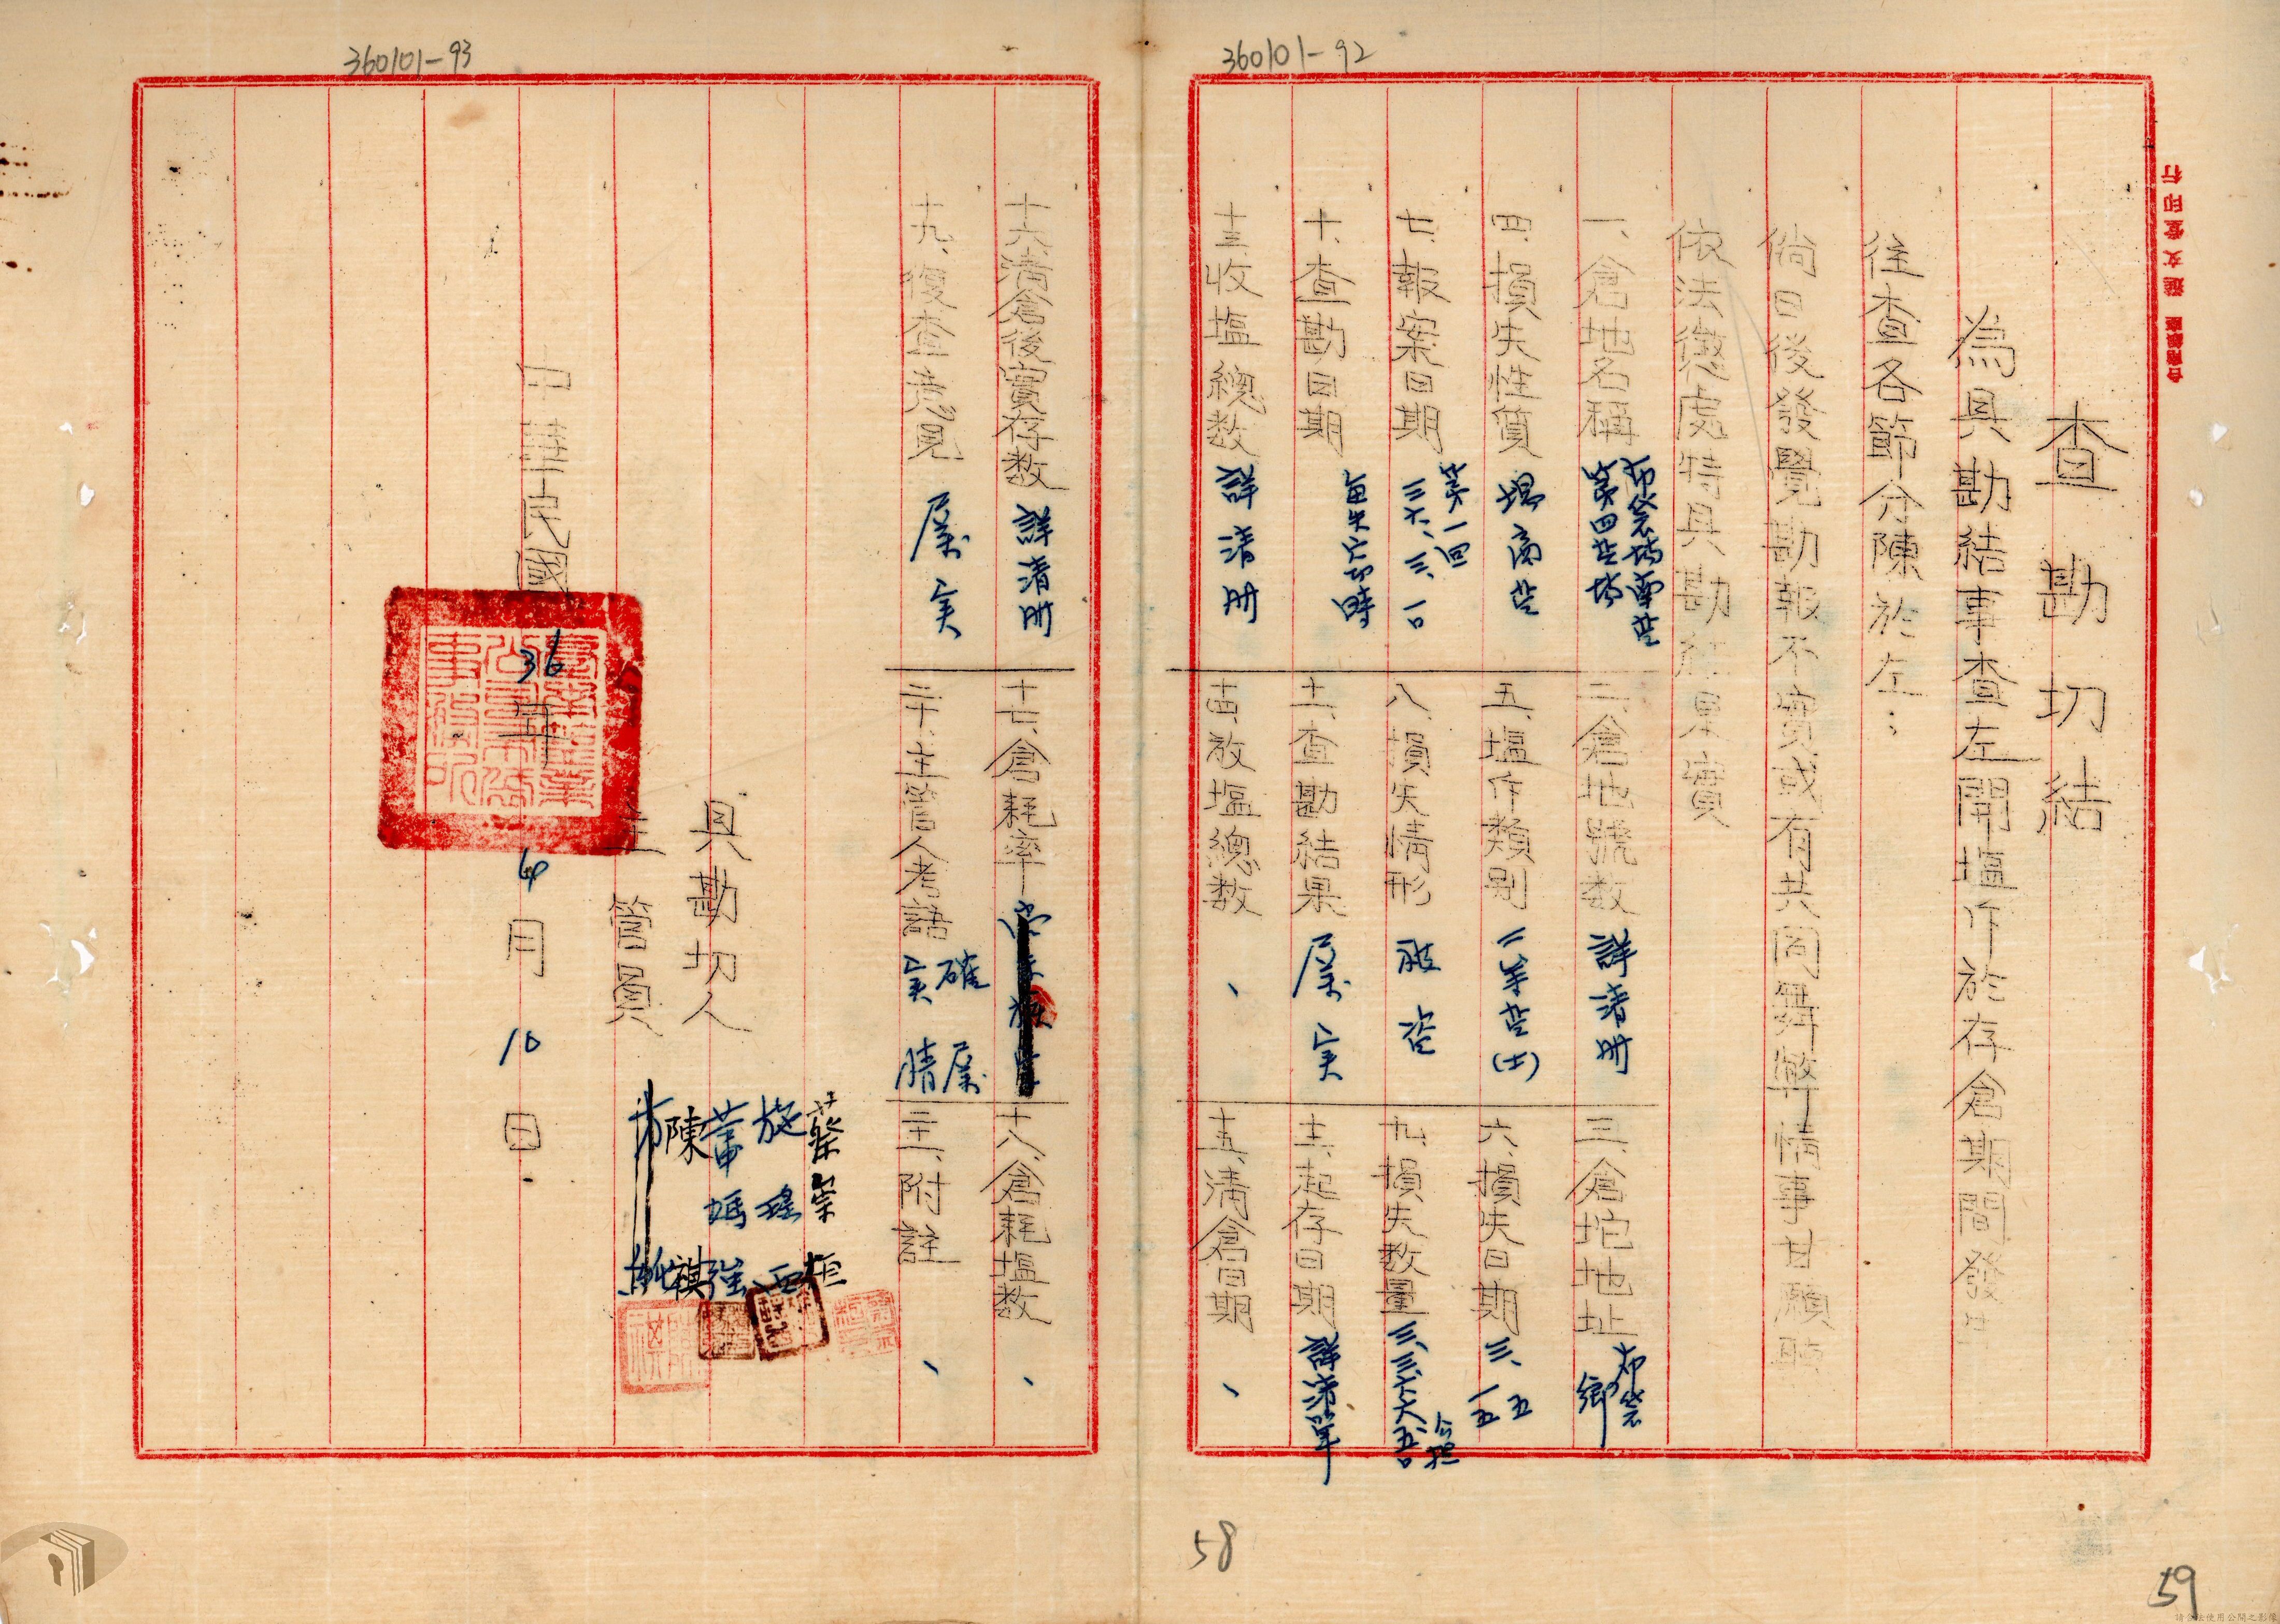 360101-92
查勘切結
為具勘結事查左開塩斤於存倉期間發生
往查各節分陳於左：
倘日後發覺勘報不實或有共同舞弊情事甘願聽
依法懲處特具勘結是實
一、倉地名稱 布袋場南芸 第四芸場
二、倉地號数 詳清册
三、倉坨地址 布袋鄉
四、損失性質
五、塩斤類別 二等芸(士)
六、損失日期 三、一五
七、報案日期 第一回 三六、三、一
八、損失情形 被盜
九、損失数量 三、三六六五
十、查勘日期
十一、查勘結果 屬实
十二、起存日期 詳清單
十三、收塩總数 詳清册
十四、放塩總数 、
十五、清倉日期 、
360101-93
十六、清倉後實存数 詳清册
十七、倉耗率
十八、倉耗塩数 、
十九、復查意見 屬实
二十、主管人考語 確屬实情
二十一、附註 、
具勘切人 蔡崇恒
主管員
陳 祺
中華民國36年4月10日
58
59